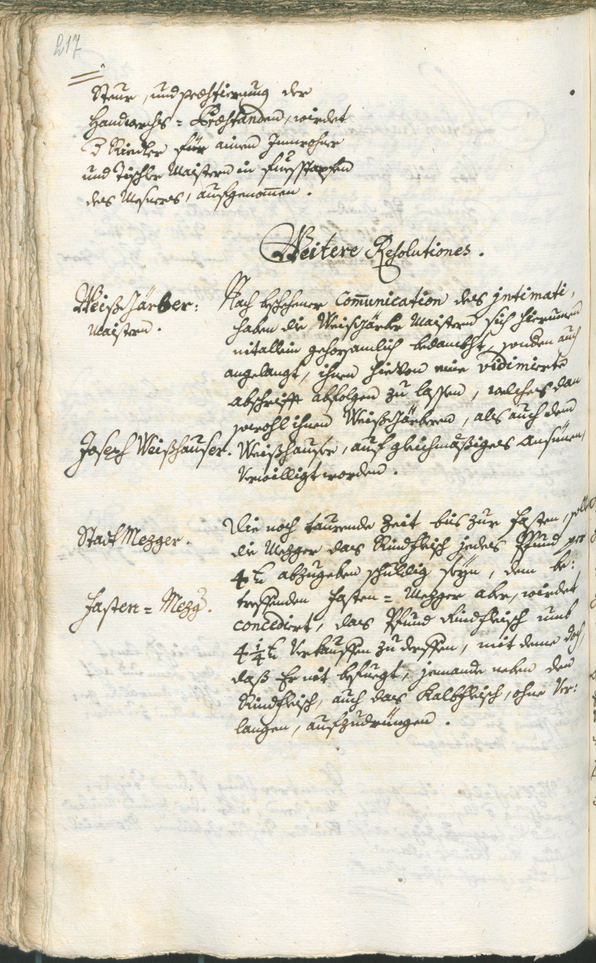 217
Steur, und præstierung der
Handwerchs-Præstanden, wirdet
3 Riedler für ainen Innwohner
und Tischler Maistern in Fuesstapfen
des Messners, aufgenommen.
Weitere Resolutiones.
Weißgärber:
Maistern.
Nach beschehener Communication des intimati,
haben die Weißgärber Maistern sich hierumen
nit allein gehorsamlich bedanckht, sondern auch
angelangt, ihnen hievon eine vidimierte
abschrifft abfolgen zu lassen, welches dan
sowohl ihnen Weißgärbern, als auch dem
Joseph Weißhauser.
Weißhauser, auf gleichmäßiges Ansuechen,
verwilligt worden.
Stadt Mezger.
Die noch daurende Zeit bis zur Fasten, solle
die Mezger das Rindfleisch jedes Pfund per
4 k abzugeben schuldig seyn, dem be:
Fasten-Mezg.
treffenden Fasten-Mezger aber, wirdet
concedirt, das Pfund Rindfleisch umb
4 1/4 k verkauffen zu derffen, mit deme doch,
daß Er nit befuegt, jemande neben dem
Rindfleisch, auch das Kalbfleisch, ohne Ver:
langen, aufzudrüngen.